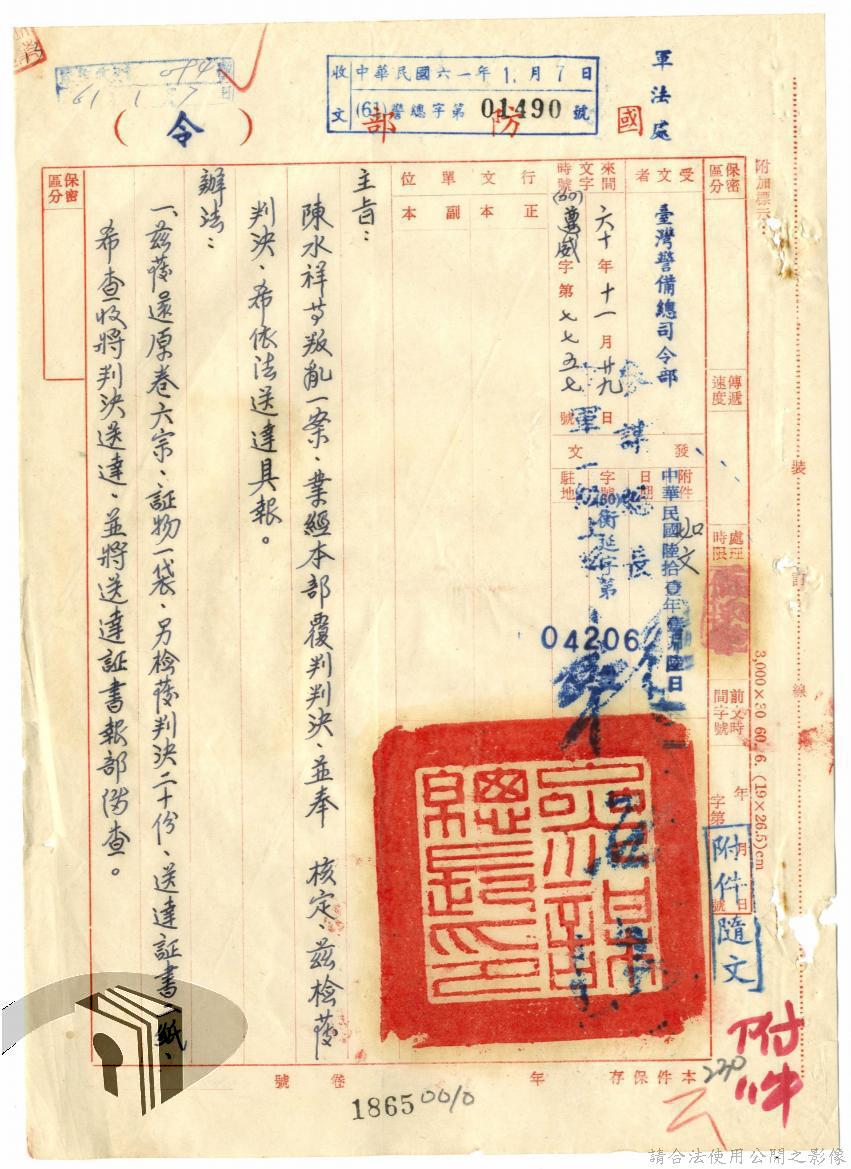 軍法處
收文
中華民國六一年1.月7日
(61)警總字第01490號
國防部
(令)
附加標示：
裝訂線
3,000×30 60. 6. (19×26.5)cm
保密區分
傳遞速度
處理時限
前文時間字號
年月日
字第號
附件隨文
受文者
臺灣警備總司令部
發文
附件
如文
日期
中華民國陸拾壹年壹月陸日
字號
(60)衡延字第04206
駐地
來文時間字號
六十年十一月廿九日
(60)萬威字第七七五七號
參謀總長
軍一級上將
行文單位
正本
副本
主旨：
陳水祥等叛亂一案、業經本部覆判判決、並奉 核定、茲檢發
判決、希依法送達具報。
辦法：
一、茲發還原卷六宗、証物一袋、另檢發判決二十份、送達証書一紙、
希查收將判決送達、並將送達証書報部備查。
保密區分
參謀總長印
本件保存年
卷號
附件
230
18650010
請合法使用公開之影像